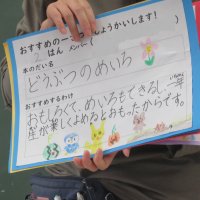 おすすめの一さつをしょうかいします！
2 はん メンバー（ ）
本のだい名
どうぶつのめいろ
おすすめするわけ
おもしろくて、めいろもできるし、一年
生が楽しくよめるとおもったからです。